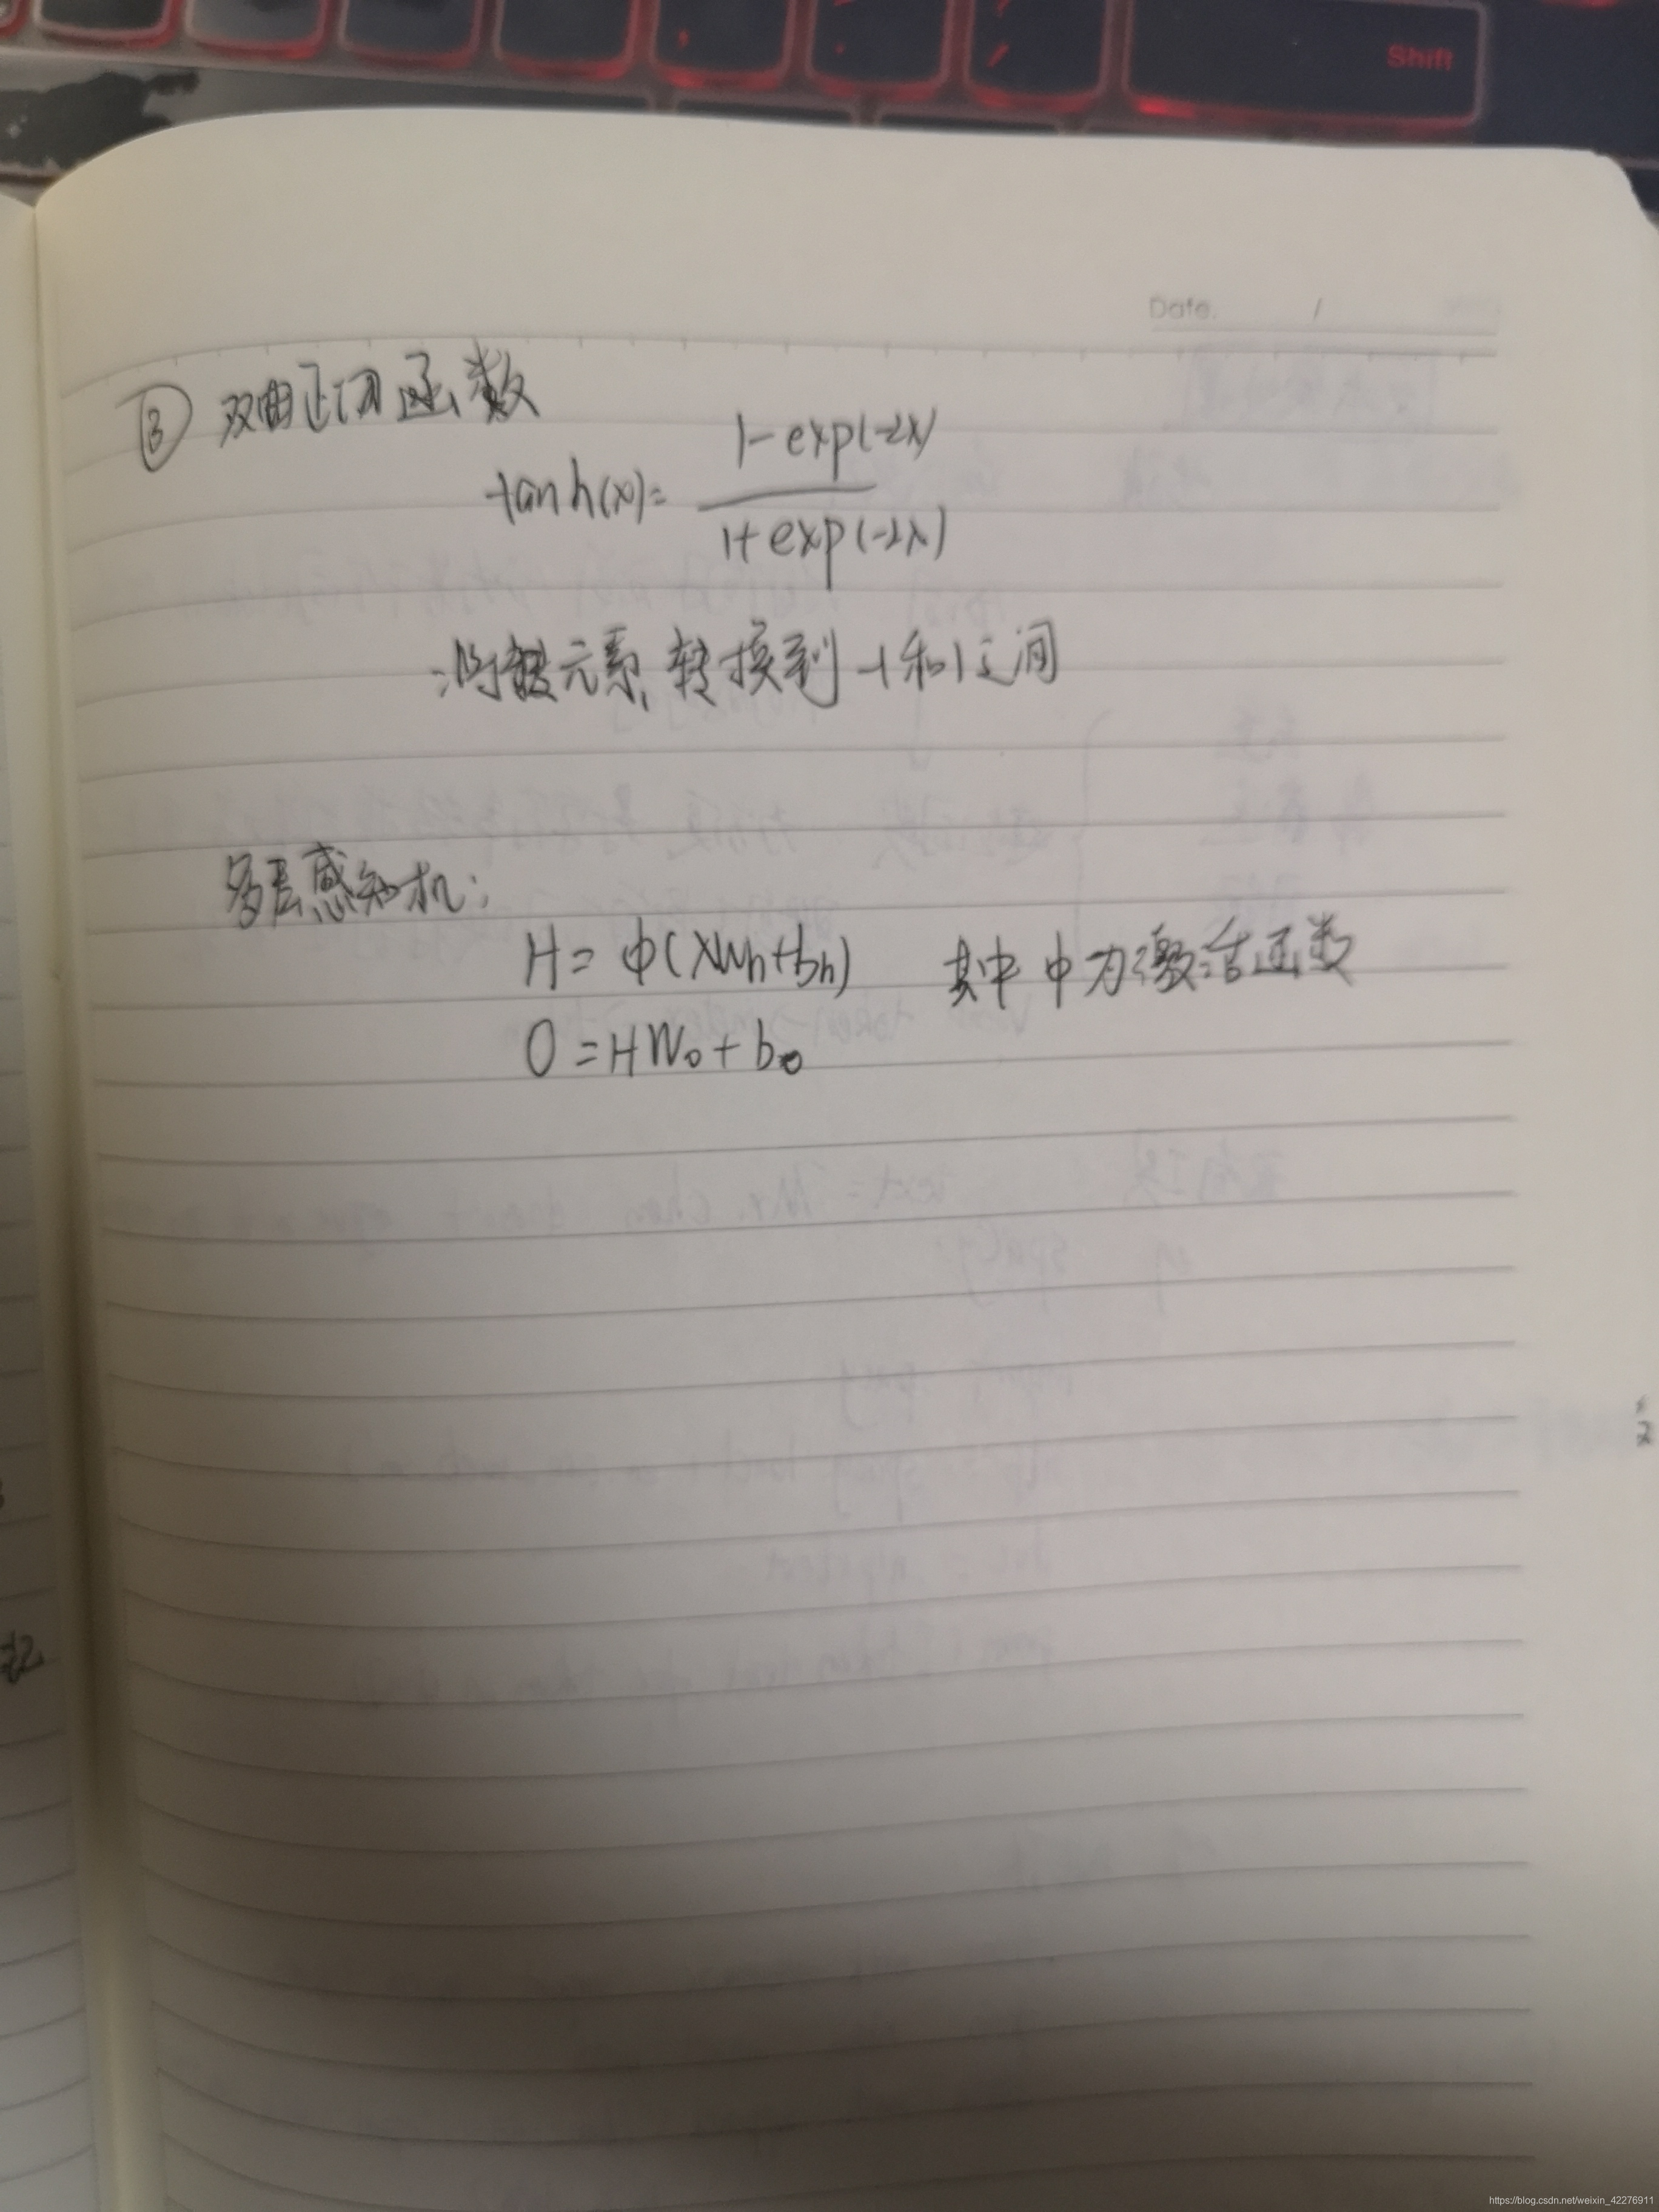 Shift
Date. /
③ 双曲正切函数
tanh(x)= 1-exp(-2x)
1+exp(-2x)
将元素转换到 -1和1之间
多层感知机:
H = ϕ(XWh+bh) 其中 ϕ为激活函数
O = HWo + bo
https://blog.csdn.net/weixin_42276911